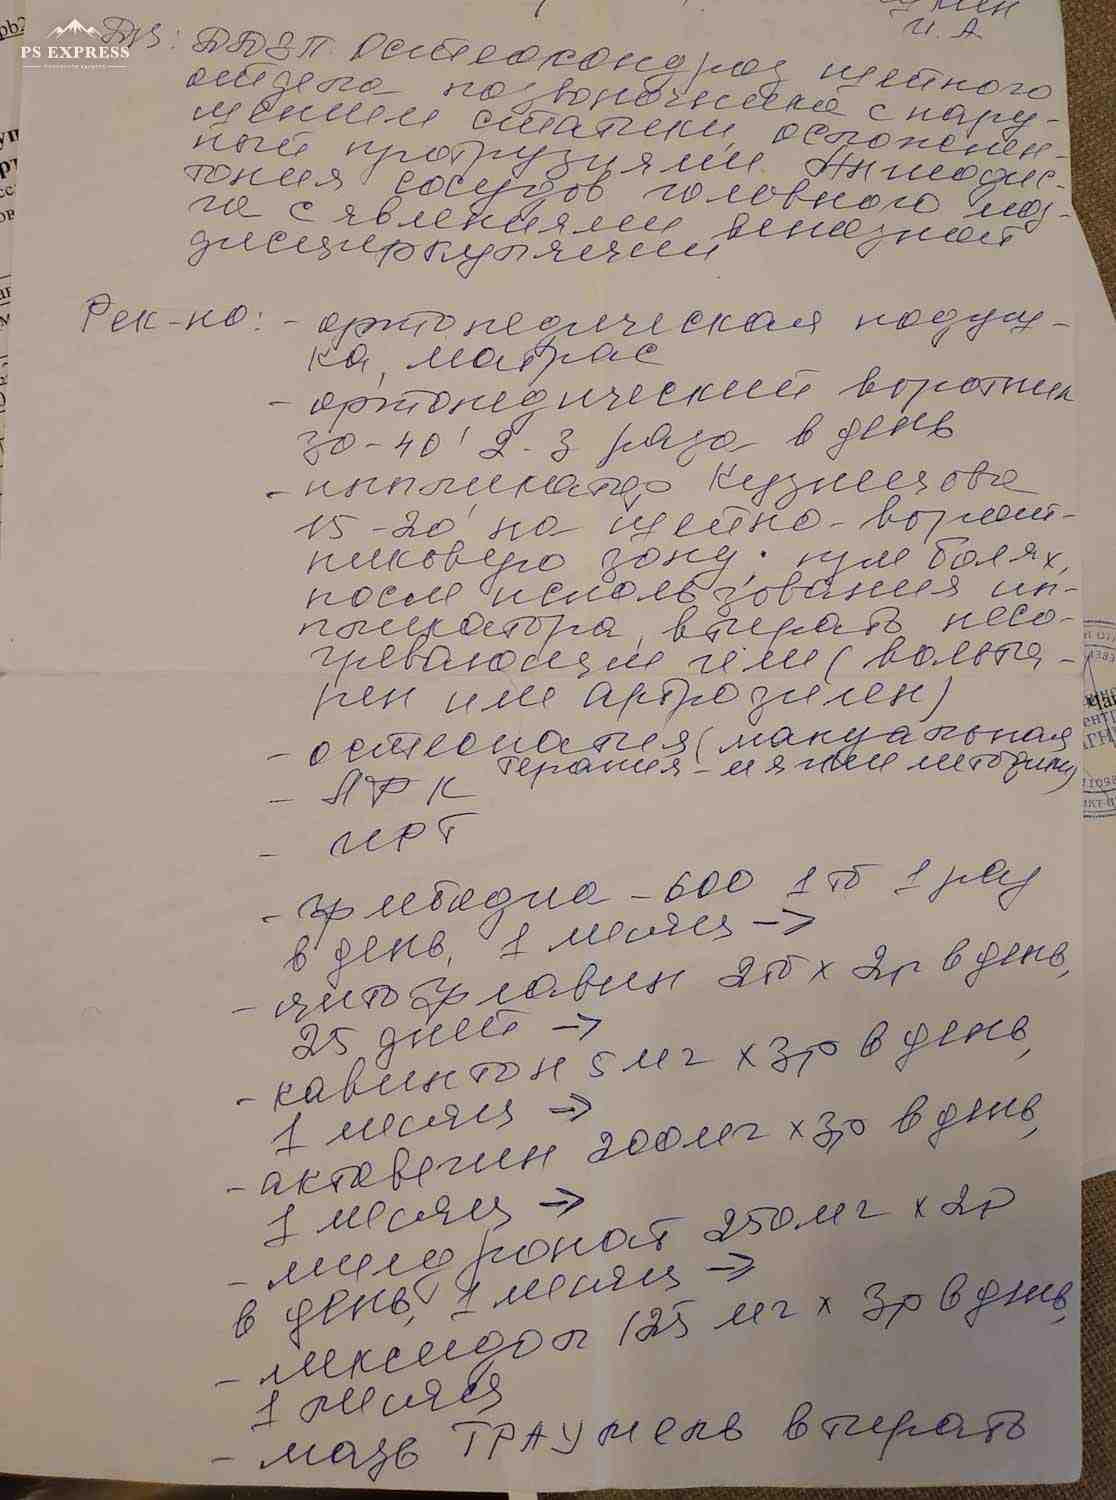 PS EXPRESS
И. А
Дз: ДДЗП. Остеохондроз шейного
отдела позвоночника с нару-
шением статики, осложнен-
ный протрузиями. Ангиодис-
тония сосудов головного моз-
га с явлениями венозной
дисциркуляции
Рек-но: - ортопедическая подуш-
ка, матрас
- ортопедический воротник
30-40' 2-3 раза в день
- иппликатор Кузнецова
15-20' на шейно-ворот-
никовую зону; при болях,
после использования ип-
пликатора, втирать несо-
гревающий гели (вольта-
рен или артрозилен)
- остеопатия (мануальная
терапия - мягкие методики)
- ЛФК
- ИРТ
- тромбодиа - 600 1 тб 1 раз
в день, 1 месяц →
- цитофлавин 2тб х 2р в день,
25 дней →
- кавинтон 5 мг х 3р в день,
1 месяц →
- актовегин 200мг х 3р в день,
1 месяц →
- милдронат 250мг х 2р
в день, 1 месяц →
- мексидол 125 мг х 3р в день,
1 месяц
- мазь ТРАУмель втирать